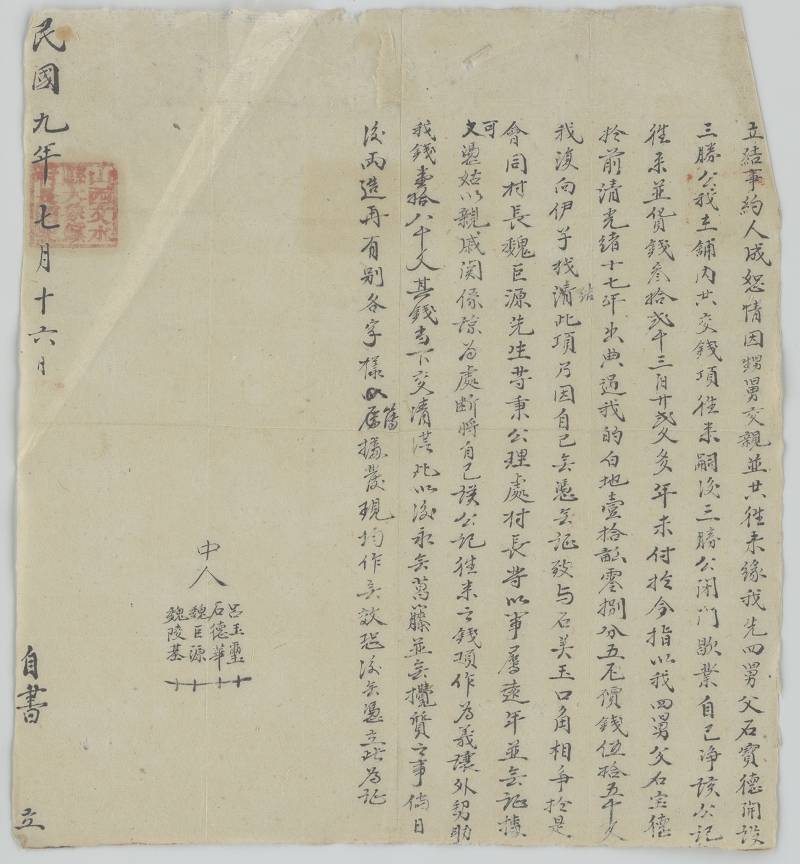 立結事約人成恕情因甥舅交親並共往来緣我先四舅父石寶德開設
三勝公我土舖內共交錢項往来嗣後三勝公闭門歇業自己净該公記
往来並貨錢叁拾弍千三百廿弍文多年未付於今指以我四舅父石宝德
於前清光緒十七年出典過我的白地壹拾畝零捌分五厘價錢伍拾五千文
我復向伊手找清結此項乃因自己無憑無証致与石美玉口角相争於是
會同村長魏巨源先生等秉公理處村長等以事屬遠年並無証據
可文憑姑以親戚関係諒為處断將自己該公記往来之錢項作為義讓外幇助
我錢壹拾八千文其錢當下交清從此以後永無葛藤並無攪賴之事倘日
後両造再有别各字樣以舊據發現均作無效恐後無憑立此為証
中人
呂玉璽
石德華
魏巨源
魏陵基
民國九年七月十六日
自書 立